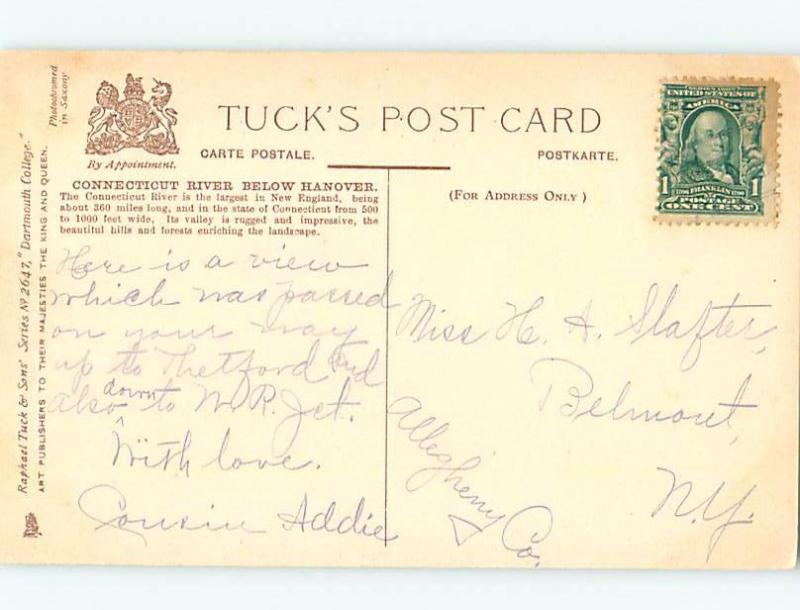 Photochromed
in Saxony
By Appointment.
TUCK'S POST CARD
CARTE POSTALE.
POSTKARTE.
UNITED STATES OF
AMERICA
1 FRANKLIN 1
POSTAGE
ONE CENT
CONNECTICUT RIVER BELOW HANOVER.
The Connecticut River is the largest in New England, being
about 360 miles long, and in the state of Connecticut from 500
to 1000 feet wide. Its valley is rugged and impressive, the
beautiful hills and forests enriching the landscape.
(FOR ADDRESS ONLY)
Here is a view
which was passed
on your way
up to Thetford and
also down to W. R. Jct.
With love.
Cousin Addie
Miss H. A. Slafter,
Belmont,
Allegheny Co.
N.Y.
Raphael Tuck & Sons' Series No 2647, "Dartmouth College."
ART PUBLISHERS TO THEIR MAJESTIES THE KING AND QUEEN.